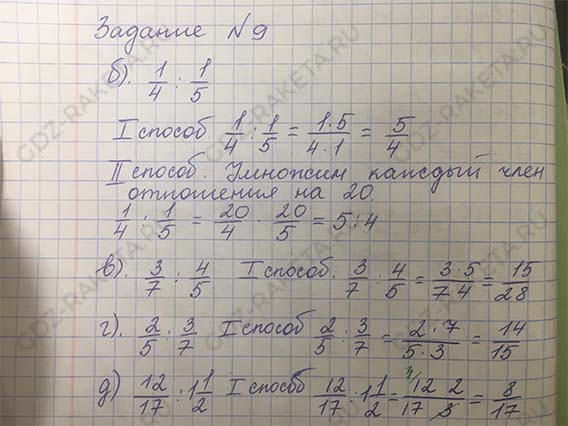 Задание №9
б). 1/4 : 1/5
I способ. 1/4 : 1/5 = 1·5/4·1 = 5/4
II способ. Умножим каждый член
отношения на 20.
1/4 : 1/5 = 20/4 : 20/5 = 5:4
в). 3/7 : 4/5 I способ. 3/7 : 4/5 = 3·5/7·4 = 15/28
г). 2/5 : 3/7 I способ 2/5 : 3/7 = 2·7/5·3 = 14/15
д) 12/17 : 1 1/2 I способ 12/17 : 1 1/2 = 12 2/17 3 = 8/17
GDZ-RAKETA.RU